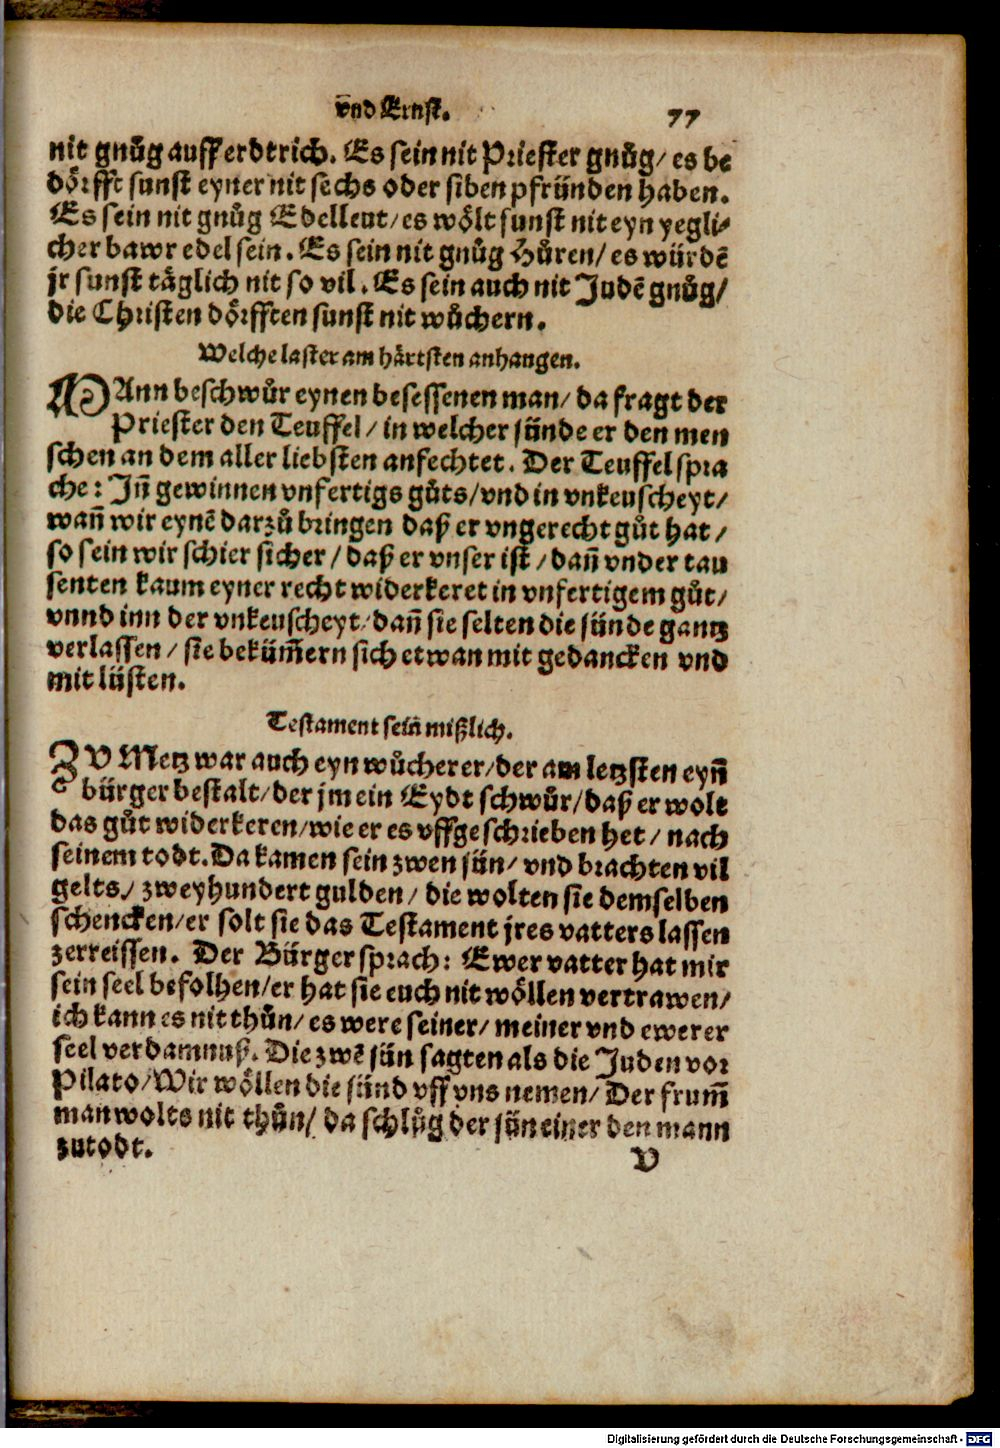 vnd Ernst. 77
nit gnůg auff erdtrich. Es sein nit Priester gnůg/ es be
dörfft sunst eyner nit sechs oder siben pfründen haben.
Es sein nit gnůg Edelleut/ es wölt sunst nit eyn yegli-
cher bawr edel sein. Es sein nit gnůg Hůren/ es würdē
jr sunst täglich nit so vil. Es sein auch nit Judē gnůg/
die Christen dörfften sunst nit wůchern.
Welche laster am härtsten anhangen.
MAnn beschwůr eynen besessenen man/ da fragt der
Priester den Teuffel/ in welcher sünde er den men
schen an dem aller liebsten anfechtet. Der Teuffel spra
che: Jñ gewinnen vnfertigs gůts/ vnd in vnkeuscheyt/
wañ wir eynē darzů bringen daß er vngerecht gůt hat/
so sein wir schier sicher/ daß er vnser ist/ dañ vnder tau
senten kaum eyner recht widerkeret in vnfertigem gůt/
vnnd inn der vnkeuscheyt/ dañ sie selten die sünde gantz
verlassen/ sie bekümm̄ern sich etwan mit gedancken vnd
mit lüsten.
Testament sein mißlich.
ZV Metz war auch eyn wůcherer/ der am letzsten eyñ
bürger bestalt/ der jm ein Eydt schwůr/ daß er wolt
das gůt widerkeren/ wie er es vffgeschrieben het/ nach
seinem todt. Da kamen sein zwen sün/ vnd brachten vil
gelts/ zweyhundert gulden/ die wolten sie demselben
schencken/ er solt sie das Testament jres vatters lassen
zerreissen. Der Bürger sprach: Ewer vatter hat mir
sein seel befolhen/ er hat sie euch nit wöllen vertrawen/
ich kann es nit thůn/ es were seiner/ meiner vnd ewerer
seel verdamnuß. Die zwē sün sagten als die Juden vor
Pilato/ Wir wöllen die sünd vff vns nemen/ Der frum̄
man wolts nit thůn/ da schlůg der sün einer den mann
zutodt.
V
Digitalisierung gefördert durch die Deutsche Forschungsgemeinschaft - DFG